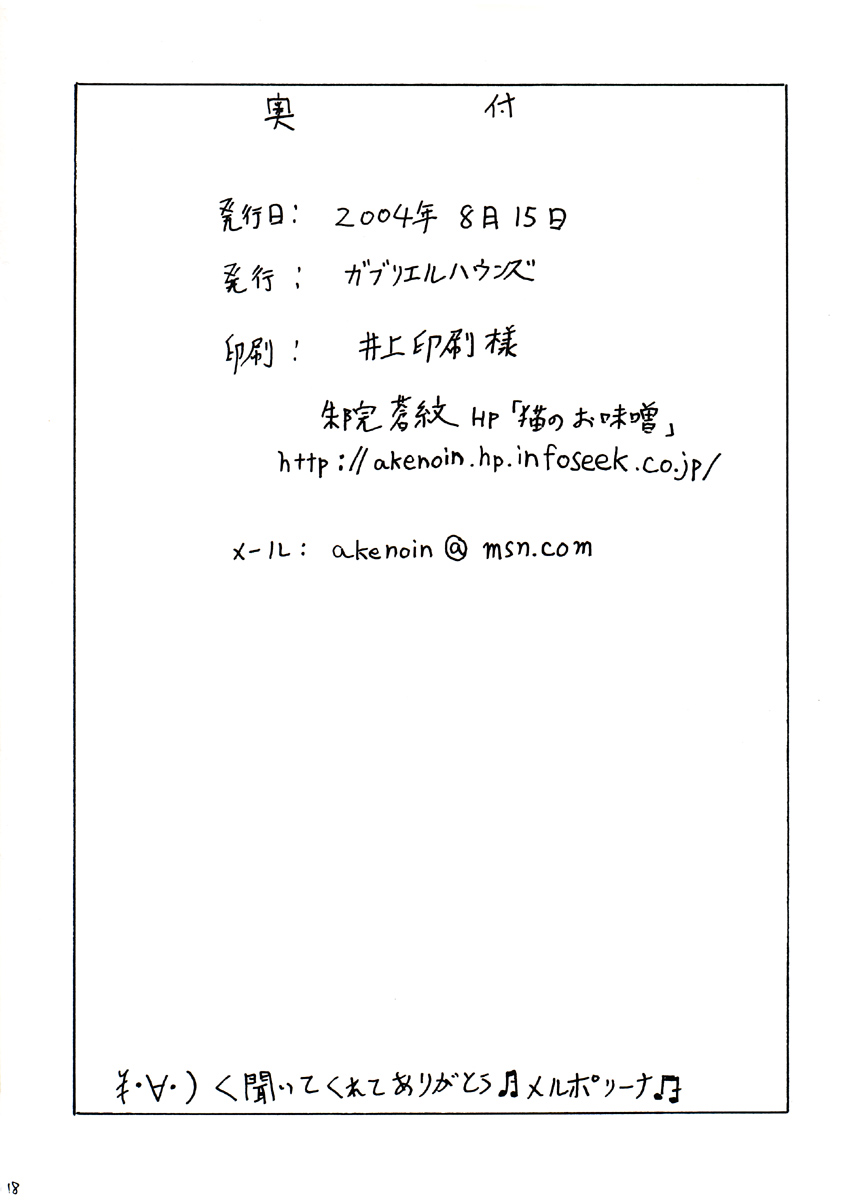 奥 付
発行日： 2004年 8月 15日
発行： ガブリエルハウンズ
印刷： 井上印刷様
朱院蒼紋 HP「猫のお味噌」
http://akenoin.hp.infoseek.co.jp/
メール： akenoin@msn.com
・∀・）＜聞いてくれてありがとう♫メルポリーナ♫
18